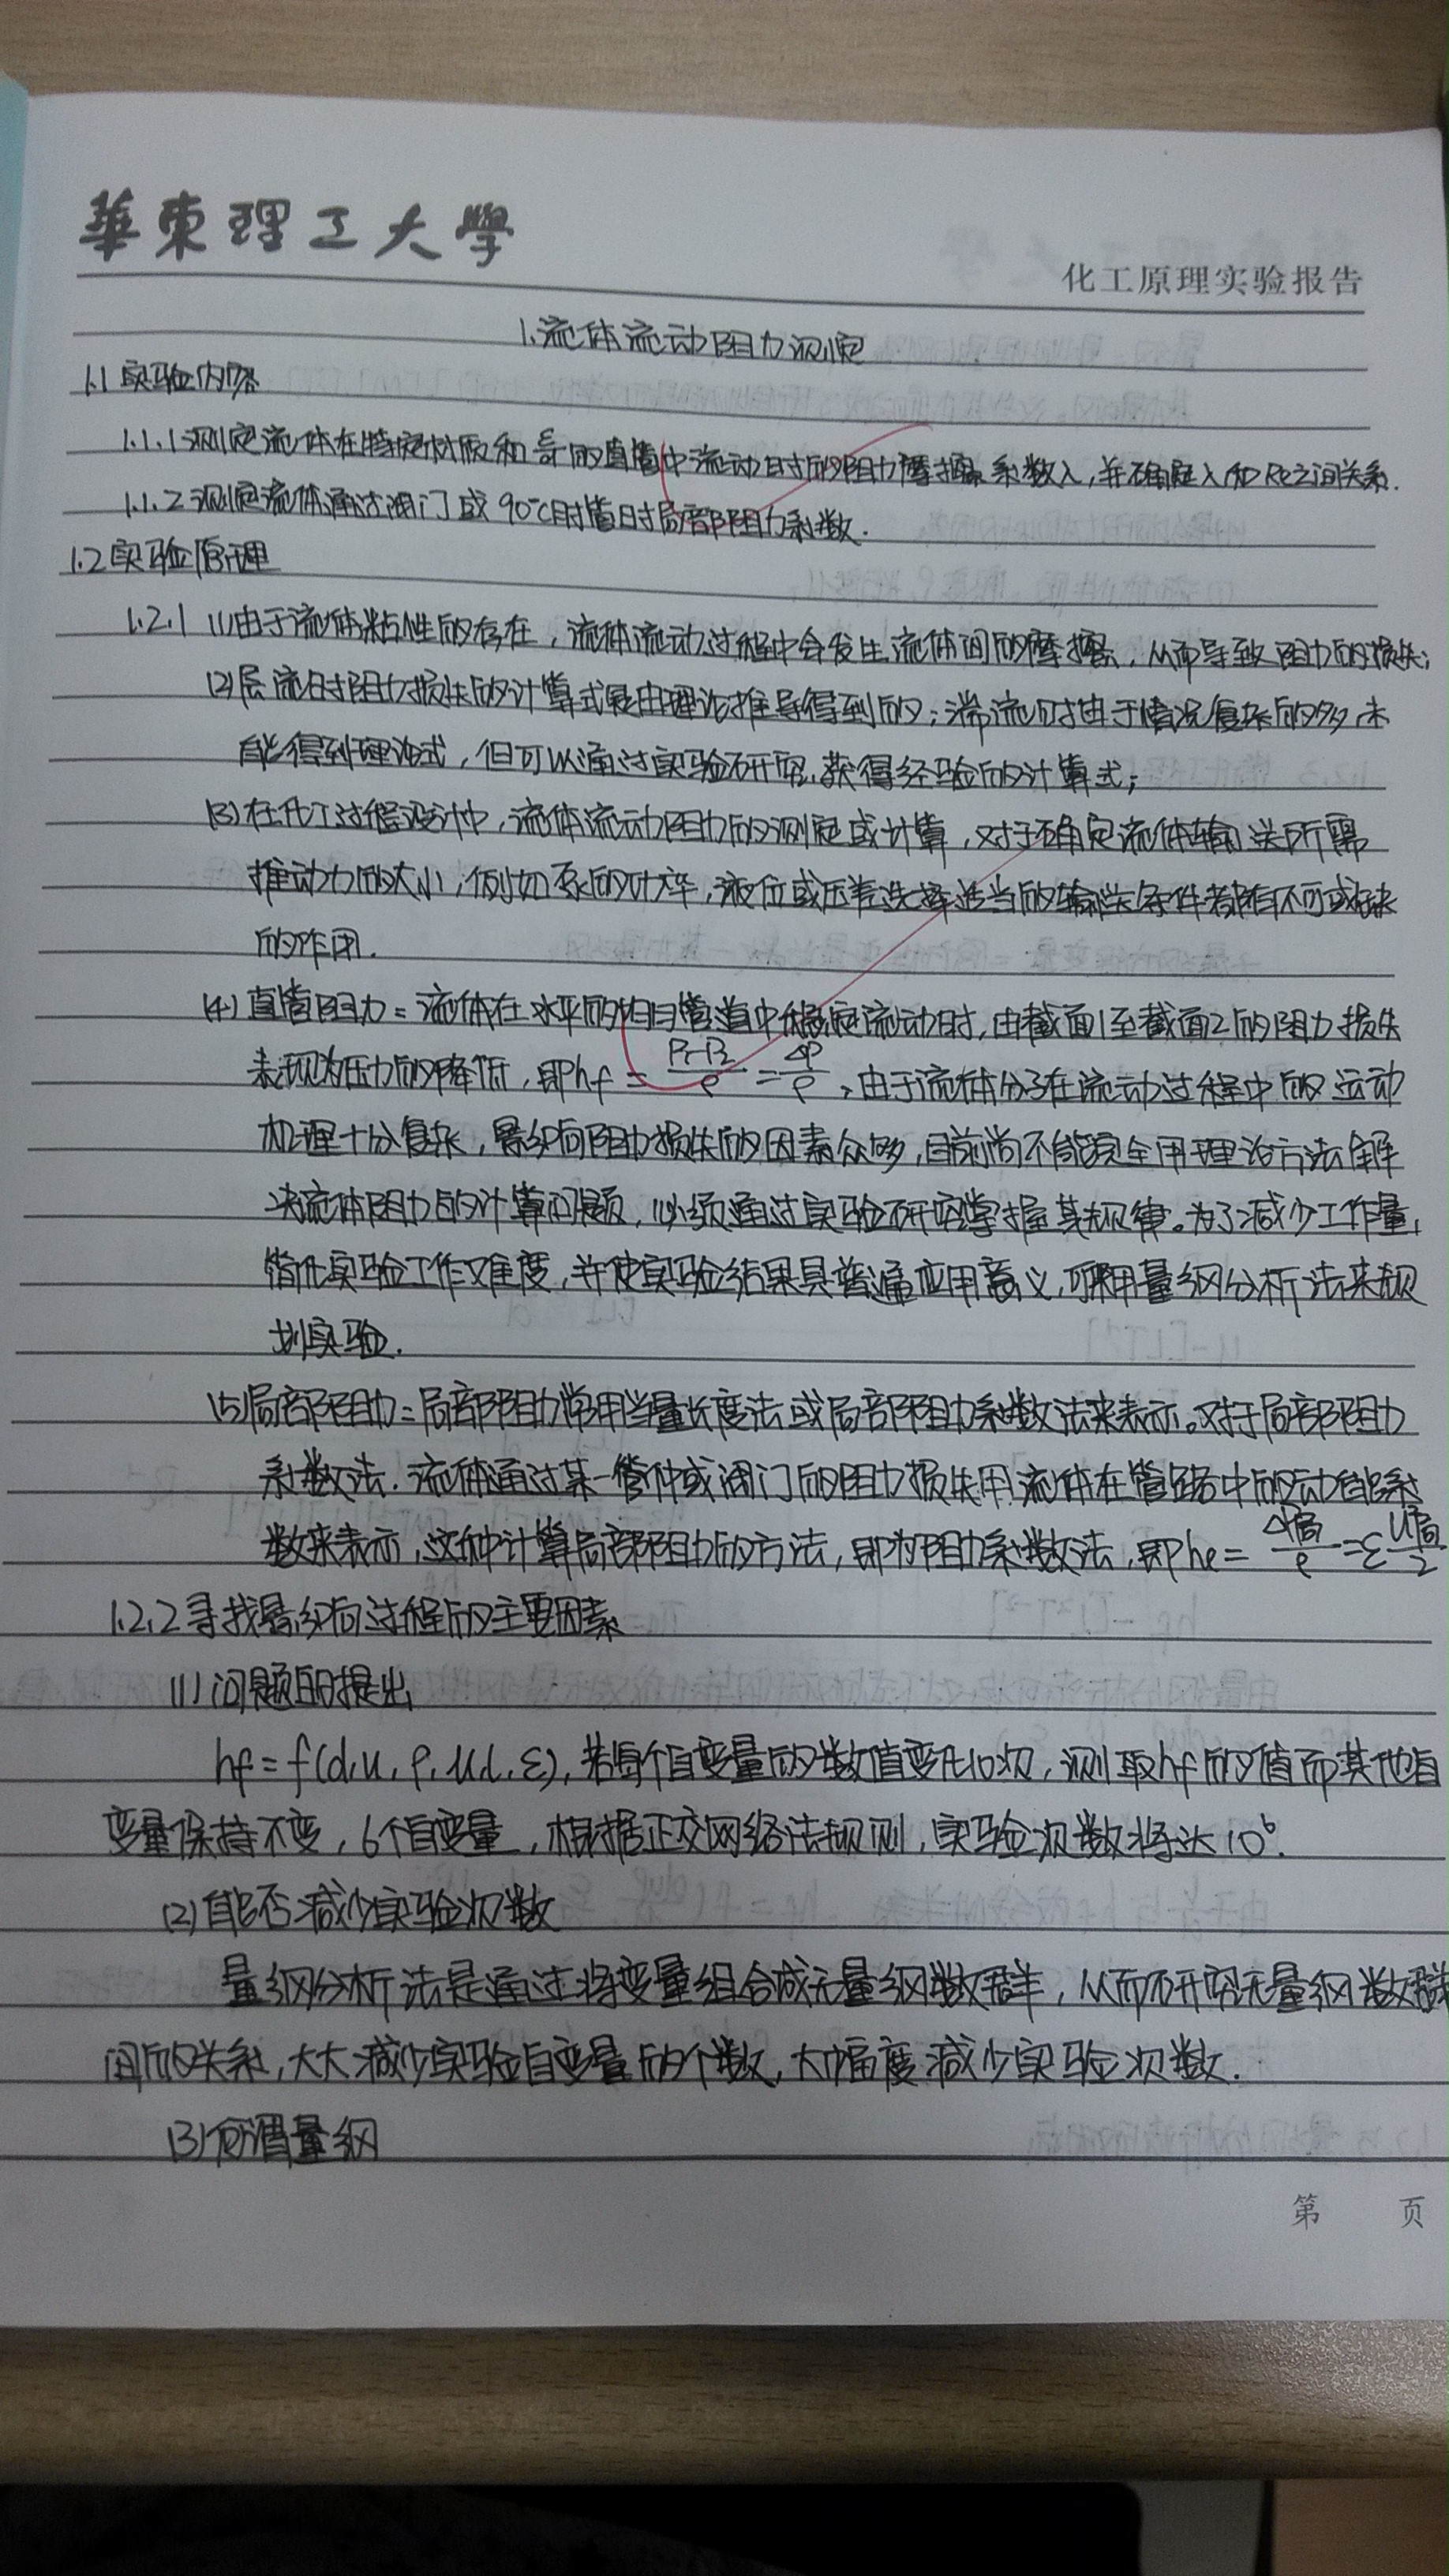 華東理工大學
化工原理实验报告
1.流体流动阻力测定
1.1 实验内容
1.1.1 测定流体在特定材质和 的直管中流动时的阻力摩擦系数λ,并确定λ和Re之间关系.
1.1.2 测定流体通过阀门或90℃时管时局部阻力系数.
1.2 实验原理
1.2.1 (1)由于流体粘性的存在,流体流动过程中会发生流体间的摩擦,从而导致阻力的损失;
(2)层流时阻力损失的计算式是由理论推导得到的;湍流时由于情况复杂的多,未
能得到理论式,但可以通过实验研究,获得经验的计算式;
(3)在化工过程设计中,流体流动阻力的测定或计算,对于确定流体输送所需
推动力的大小,例如泵的功率,液位或压差,选择适当的输送条件都有不可或缺
的作用.
(4)直管阻力:流体在水平的均匀管道中稳定流动时,由截面1至截面2的阻力损失
表现为压力的降低,即hf=P1-P2/ρ=ΔP/ρ,由于流体分子在流动过程中的运动
机理十分复杂,影响阻力损失的因素众多,目前尚不能完全用理论方法解
决流体阻力的计算问题,必须通过实验研究掌握其规律。为了减少工作量,
简化实验工作难度,并使实验结果具普遍应用意义,可采用量纲分析法来规
划实验.
(5)局部阻力:局部阻力常用当量长度法或局部阻力系数法来表示。对于局部阻力
系数法.流体通过某一管件或阀门的阻力损失用流体在管路中的动能系
数来表示,这种计算局部阻力的方法,即为阻力系数法,即he=ΔP局/ρ=ξu²局/2
1.2.2 寻找影响过程的主要因素
(1)问题的提出
hf=f(d,u,ρ,μ,l,ε),若每个自变量的数值变化10次,测取hf的值而其他自
变量保持不变,6个自变量,根据正交网络法规则,实验次数将达10⁶.
(2)能否减少实验次数
量纲分析法是通过将变量组合成无量纲数群,从而研究无量纲数群
间的关系,大大减少实验自变量的个数,大幅度减少实验次数.
(3)何谓量纲
第 页